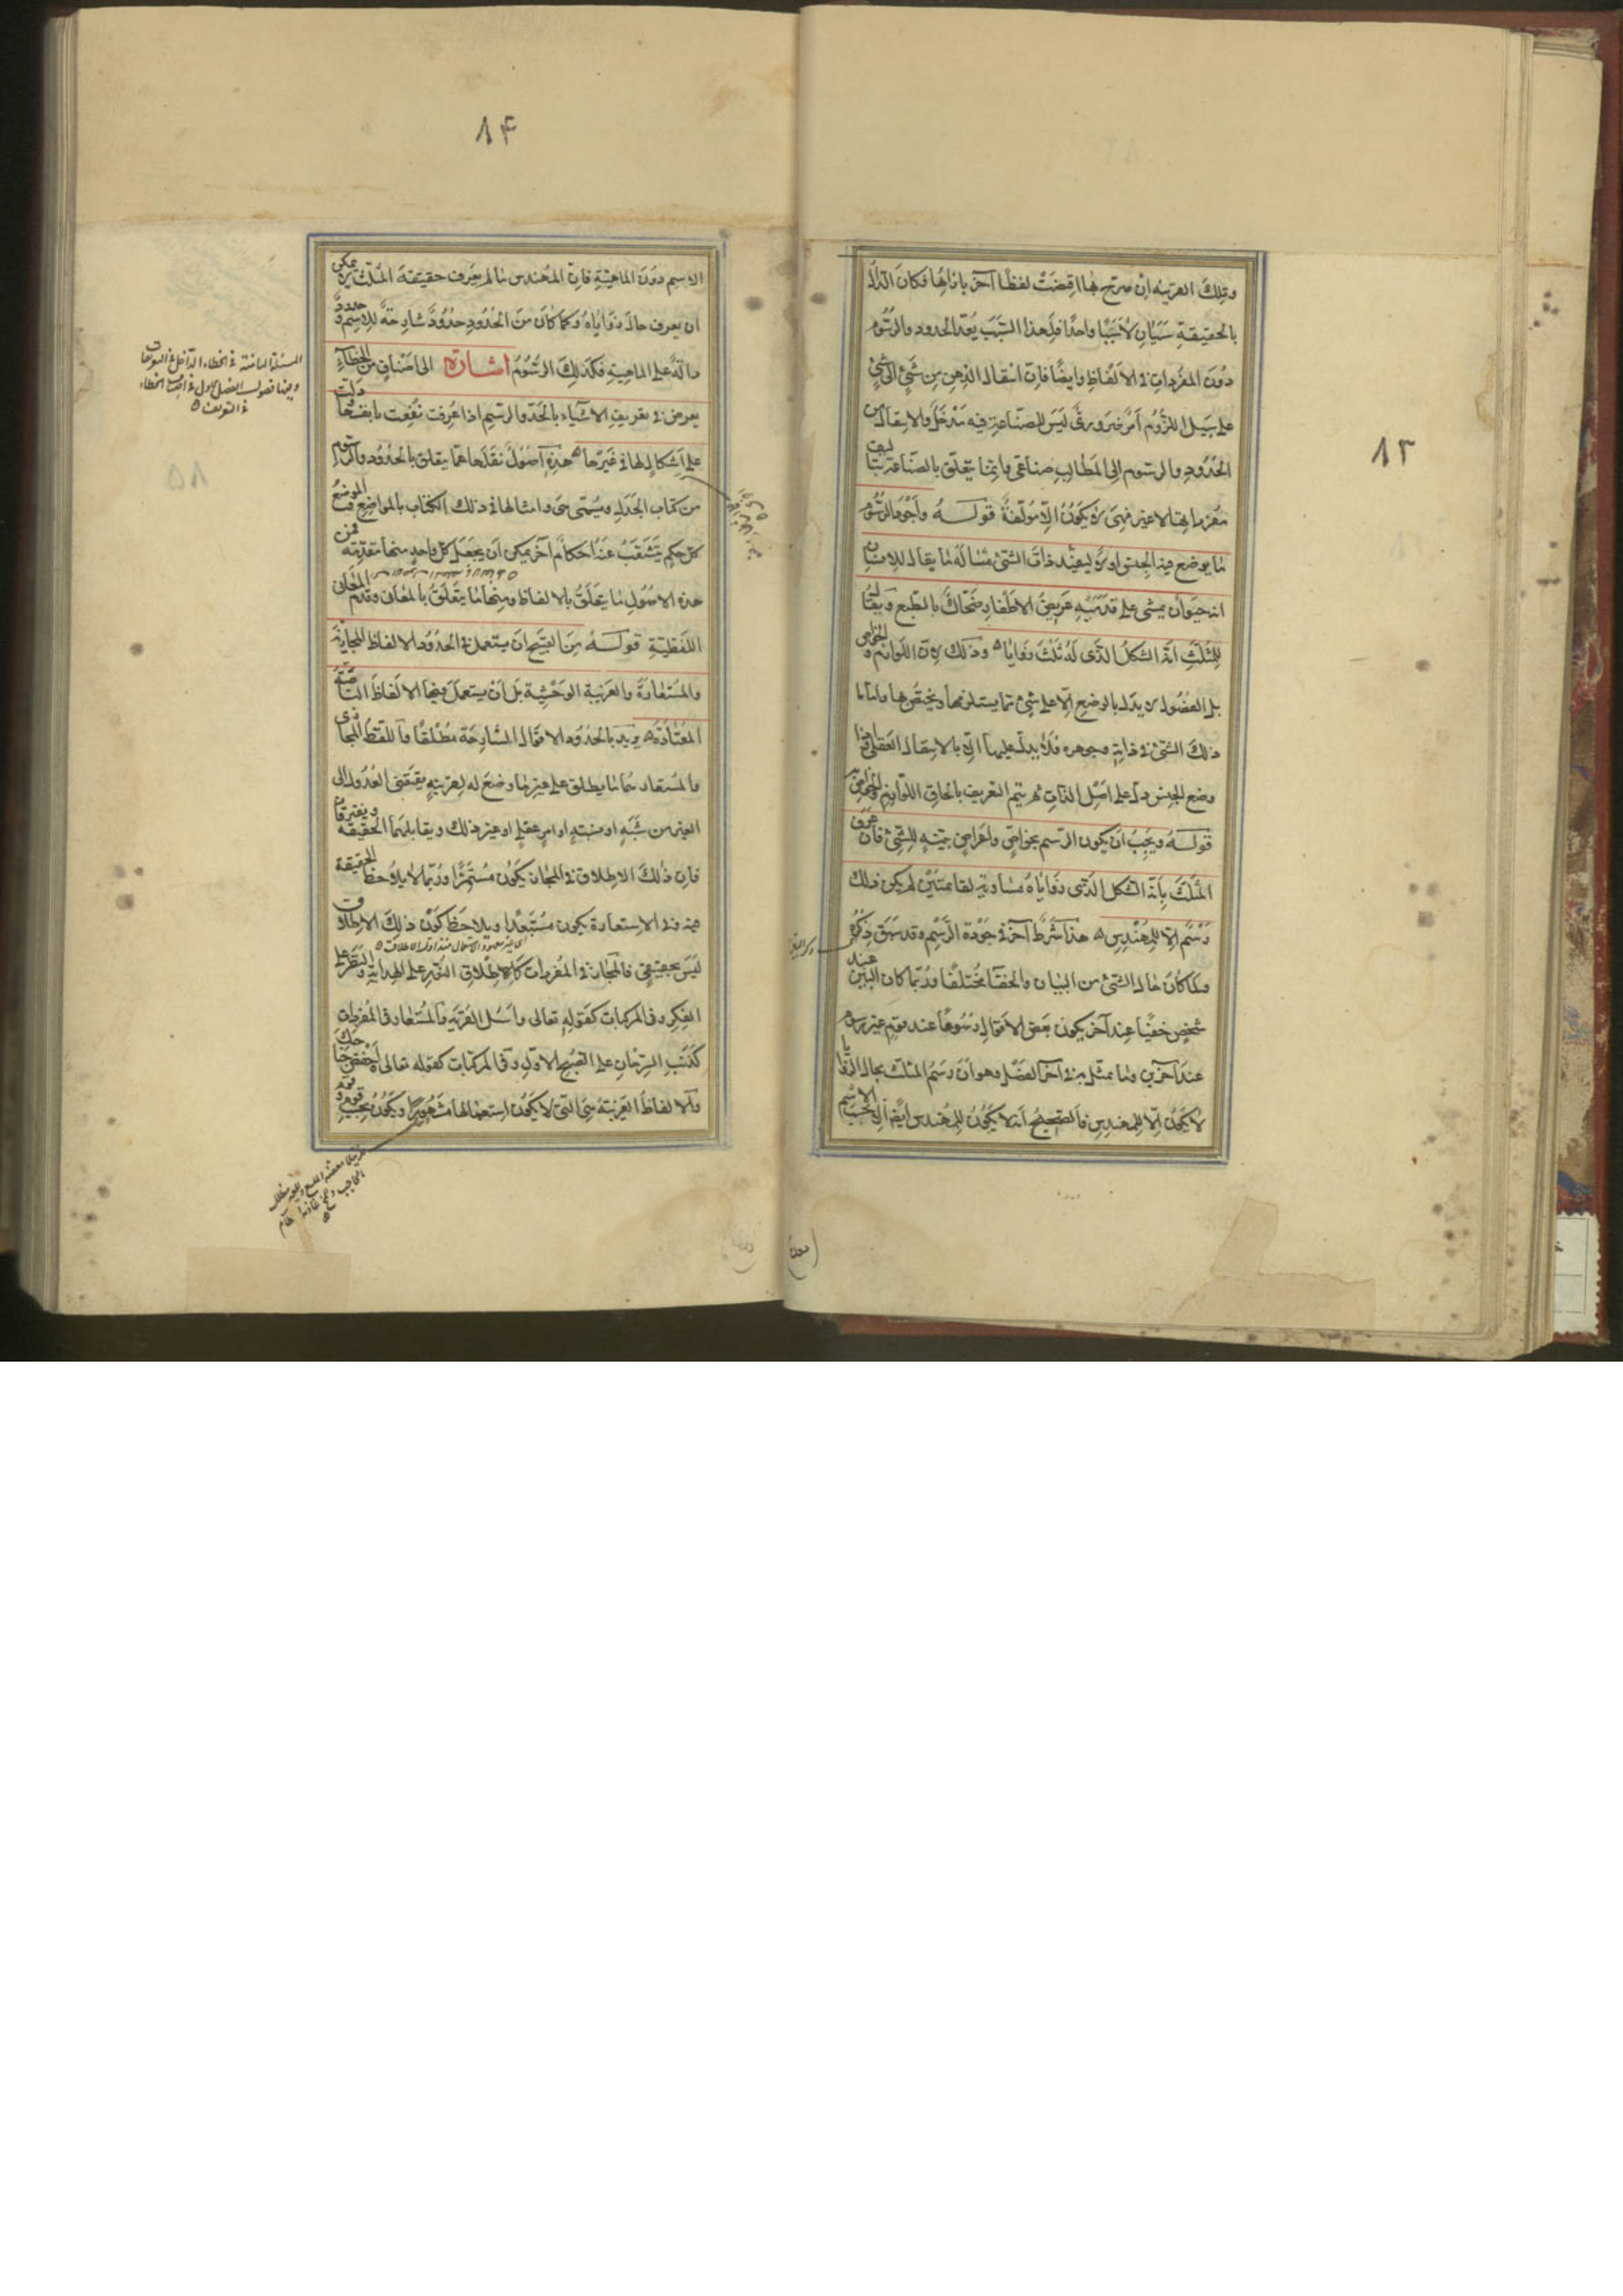 ١٣
وتلك القرينه ان صرّح بها اقتضت لفظاً آخر بازائها فكان الدالّ
بالحقيقة سببان لا سبباً واحداً فلهذا السّبب يُعدّ الحدود والرسوم
دون المفردات فى الألفاظ وايضاً فان انتقال الذهن من شئ الى شئ
على سبيل اللزوم أمر ضرورىّ ليس للصّناعة فيه مدخل والانتقال من
الحدود والرسوم الى المطالب صناعى وانما يتعلق بالصّناعة تأليف
مفرداتها لا غير فهى لا يكون الا مؤلّفة قوله وأجود الرسوم
ما يوضع فيه الجنس اولاً ليفيد ذات الشئ مثاله ما يقال للانسان
انه حيوان يمشى على قدميه عريض الاظفار ضحّاك بالطبع ويقال
للمثلث انه الشكل الذى له ثلث زوايا ه وذلك لان اللوازم والخواص
بل الفصول لا يدل بالوضع الا على شئ ما يستلزمها او يختص بها واما ما
ذلك الشئ فى ذاته وجوهره فلا يدل عليها الا بالانتقال العقلى فاذا
وضع الجنس دل على اصل الذات ثم يتم التعريف بالحاق اللوازم والخواص به
قوله ويجب ان يكون الرسم بخواص واعراض بينه للشئ فان عرف
المثلث بأنه الشكل الذى زواياه مساوية لقائمتين لم يكن ذلك
رسم الا للمهندس ه هذا شرط آخر فى جودة الرّسم وقد سبق ذكره
ولما كان حال الشئ من البيان والخفاء مختلفاً وربما كان البين عند
شخص خفياً عند آخر يكون بعض الاقوال رسوماً عند قوم غير رسوم
عند آخرين واما تمثل به فى آخر الفصل وهو ان رسم المثلث بحال الزوايا
لا يكون الا للمهندس فالصحيح أنه لا يكون للمهندس ايضا الا بحسب الاسم
١٤
الاسم دون الماهية فان المهندس ما لم يعرف حقيقة المثلث لا يمكن
ان يعرف حال زواياه وكما كان من الحدود حدود شارحة للاسم وحدود
دالة على الماهية فكذلك الرسوم اشارة الى اصناف من الخطاء
يعرض فى تعريف الاشياء بالحد والرسم اذا عرفت نفعت بانفسها ودلت
على اشكال لها فى غيرها ه هذه اصول نقلها مما يتعلق بالحدود والرسوم
من كتاب الجدل ويسمى هى وامثالها فى ذلك الكتاب بالمواضع والموضع
كل حكم يتشعب عنه احكام آخر يمكن ان يجعل كل واحد منها مقدمة فمن
هذه الاصول ما يتعلق بالالفاظ ومنها ما يتعلق بالمعانى وقدم
اللفظية قوله من القبيح ان يستعمل فى الحدود الالفاظ المجازية
والمستعارة والغريبة الوحشية بل ان يستعمل فيها الالفاظ الناصة
المعتادة ه يريد بالحدود الاقوال الشارحة مطلقاً واللفظ المجازى
والمستعار هما ما يطلق على غير ما وضع له لقرينه يقتضى العدول الى
الغير من شبه او نسبة او امر عقلى او غير ذلك ويقابلهما الحقيقه ويفترقان
فان ذلك الاطلاق فى المجاز يكون مستمراً وربما لا يلاحظ الحقيقة
فيه وفى الاستعارة يكون مستبعداً ويلاحظ كون ذلك الاطلاق
ليس بحقيقى فالمجاز فى المفردات كاطلاق النور على الهداية والنظر على
الفكر وفى المركبات كقوله تعالى واسئل القرية والمستعار فى المفردات
كذنب السرحان على الصبح الاول وفى المركبات كقوله تعالى واخفض جناحك
والالفاظ الغريبة هى التى لا يكون استعمالها مشهوراً ويكون بحسب قوم قوم
المسئلة الثامنة فى الخطاء الداخل فى التعريفات
وفيها فصول الفصل الاول فى اصناف الخطاء
فى التعريف ه